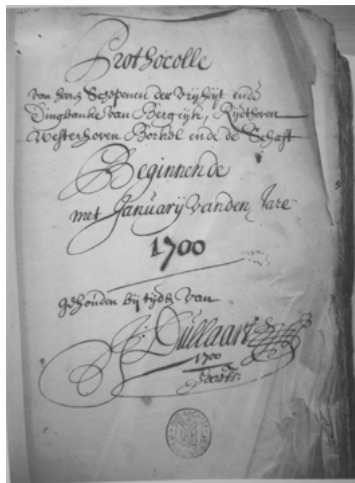 Prothocolle
van heeren Schepenen der vrijheijt ende
Dingbanke van Bergeijk, Rijthoven
Westerhoven Borkel ende de Schaft
Beginnende
met Januarij vanden Jare
1700
gehouden bij tijde van
Dullaart
1700